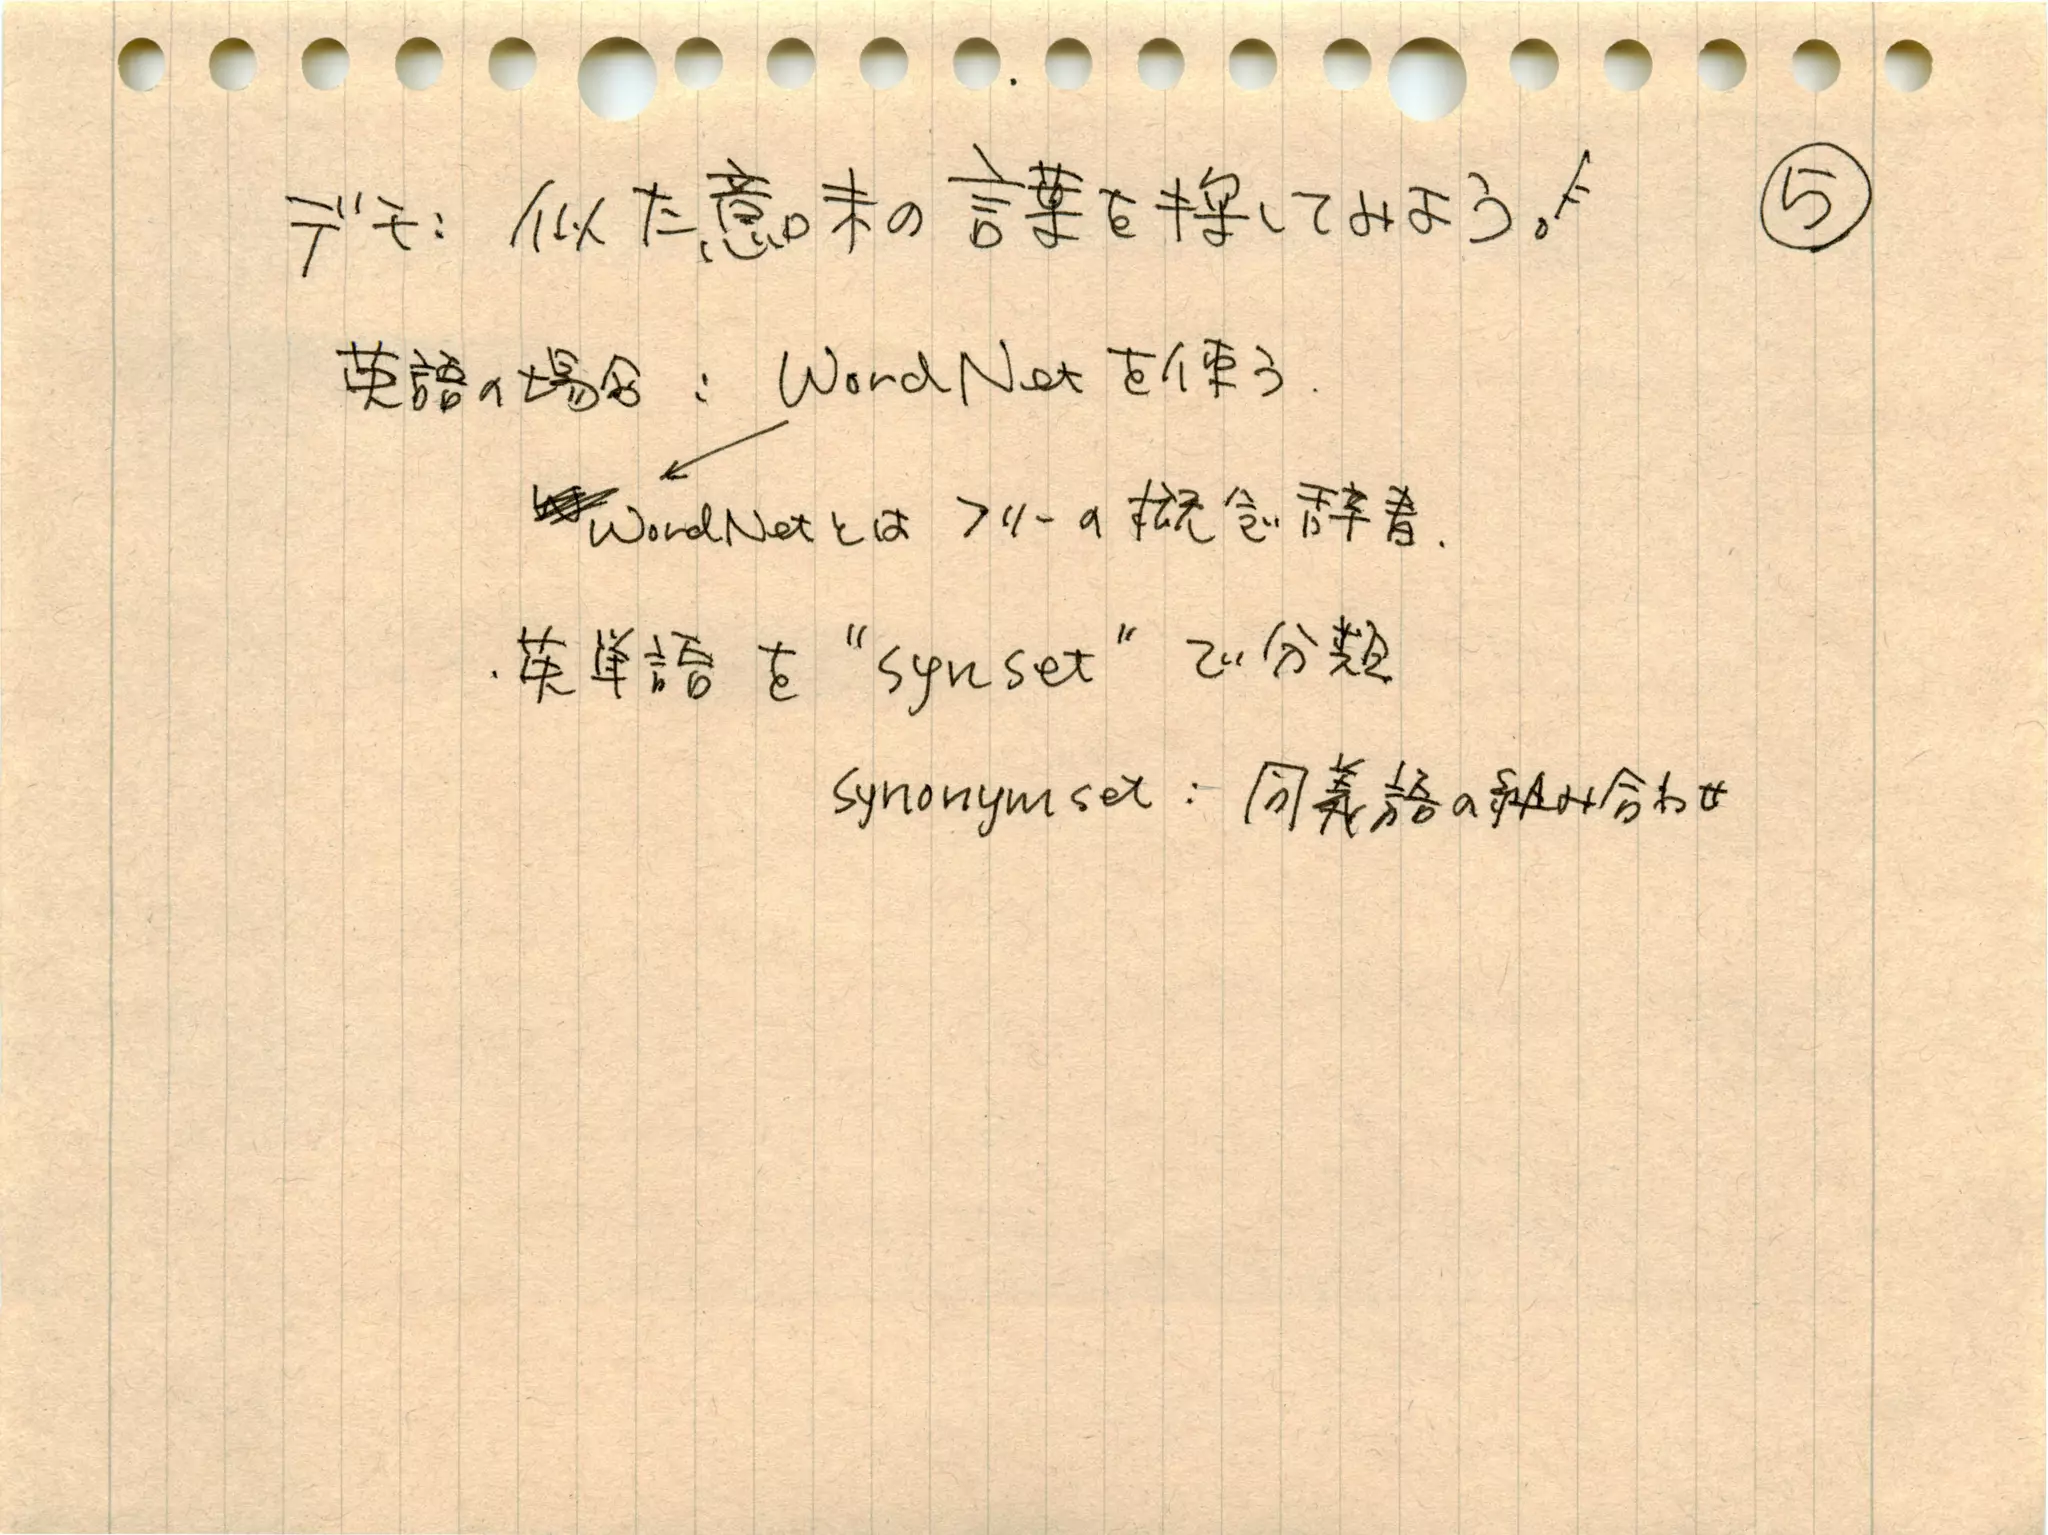 デモ: 似た意味の言葉を探してみよう。 ⑤
英語の場合 : WordNetを使う.
WordNetとは フリーの概念辞書.
・英単語 を "synset" で分類
synonym set : 同義語の組み合わせ